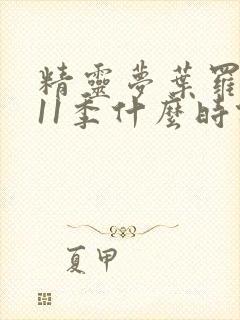 精靈夢葉羅
11季什麼時
夏甲